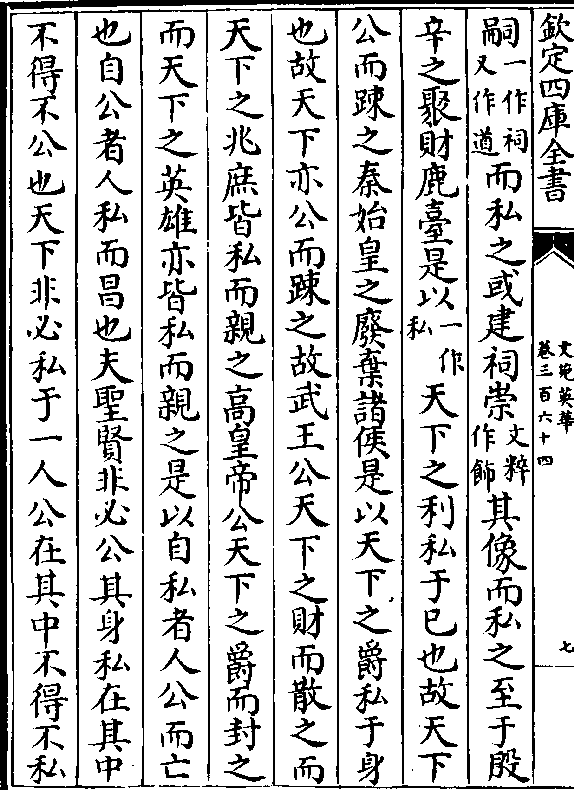 欽定四庫全書
文苑英華
卷三百六十四
七
嗣一作祠又作道而私之或建祠崇文粹作飾其像而私之至于殷
辛之聚財鹿臺是以一作私天下之利私于已也故天下
公而踈之秦始皇之廢棄諸侯是以天下之爵私于身
也故天下亦公而踈之故武王公天下之財而散之而
天下之兆庶皆私而親之高皇帝公天下之爵而封之
而天下之英雄亦皆私而親之是以自私者人公而亡
也自公者人私而昌也夫聖賢非必公其身私在其中
不得不公也天下非必私于一人公在其中不得不私